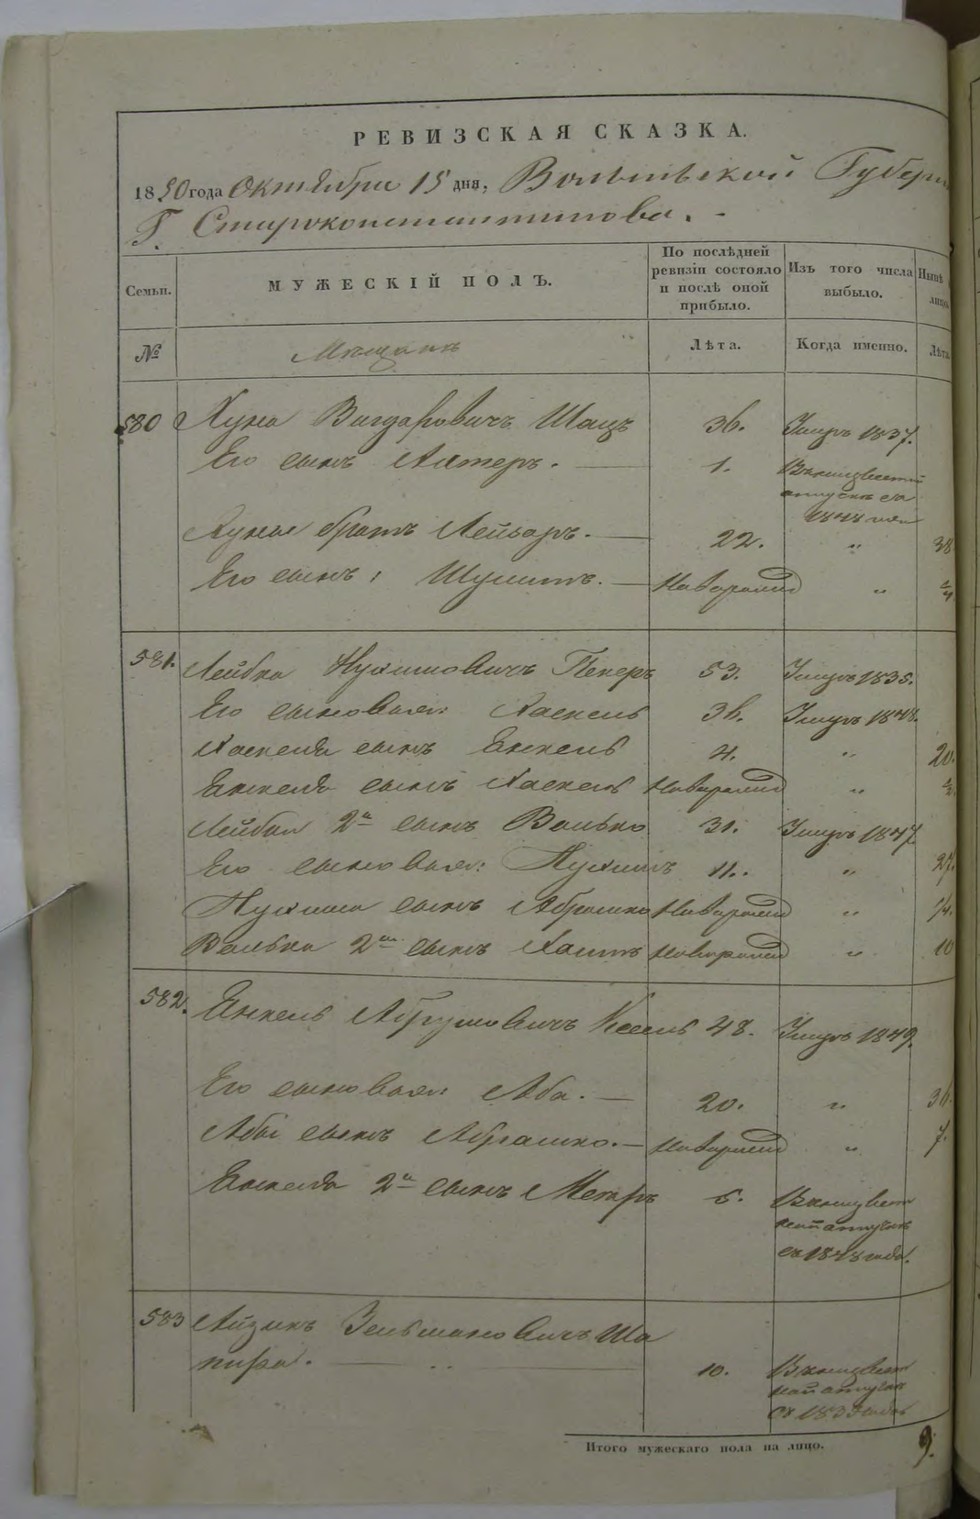 РЕВИЗСКАЯ СКАЗКА.
1850 года Октября 15 дня, Волынской Губерн
Г. Староконстантинова.
Семьи.
МУЖЕСКІЙ ПОЛЪ.
По послѣдней ревизіи состояло и послѣ оной прибыло.
Изъ того числа выбыло.
Нынѣ
№
Мещанъ
Лѣта.
Когда именно.
Лѣта
580 Хуна Вигдаровичъ Шацъ 36. Умеръ 1837.
Его сынъ Алтеръ. 1.
Хуны братъ Лейзаръ. 22. " 38
Его сынъ: Шулимъ. Новорожд "
581. Лейбка Нухимовичъ Пекеръ 53. Умеръ 1835.
Его сыновья: Хаскель 36. Умеръ 1848.
Хаскеля сынъ Енкель 4. " 20.
Енкеля сынъ Хаскель Новорожд "
Лейбки 2й сынъ Волько 31. Умеръ 1847
Его сыновья: Нухимъ 11. " 27.
Нухима сынъ Абрамко Новорожд "
Волька 2й сынъ Хаимъ Новорожд " 10
582. Енкель Абрумовичъ 48. Умеръ 1849.
Его сыновья: Аба. 20. " 36.
Абы сынъ Абрамко. Новорожд " 7.
Енкеля 2й сынъ 6.
съ 1848 года.
583 Айзикъ Зельмановичъ Ша
пира. 10.
Итого мужескаго пола на лицо. 9.